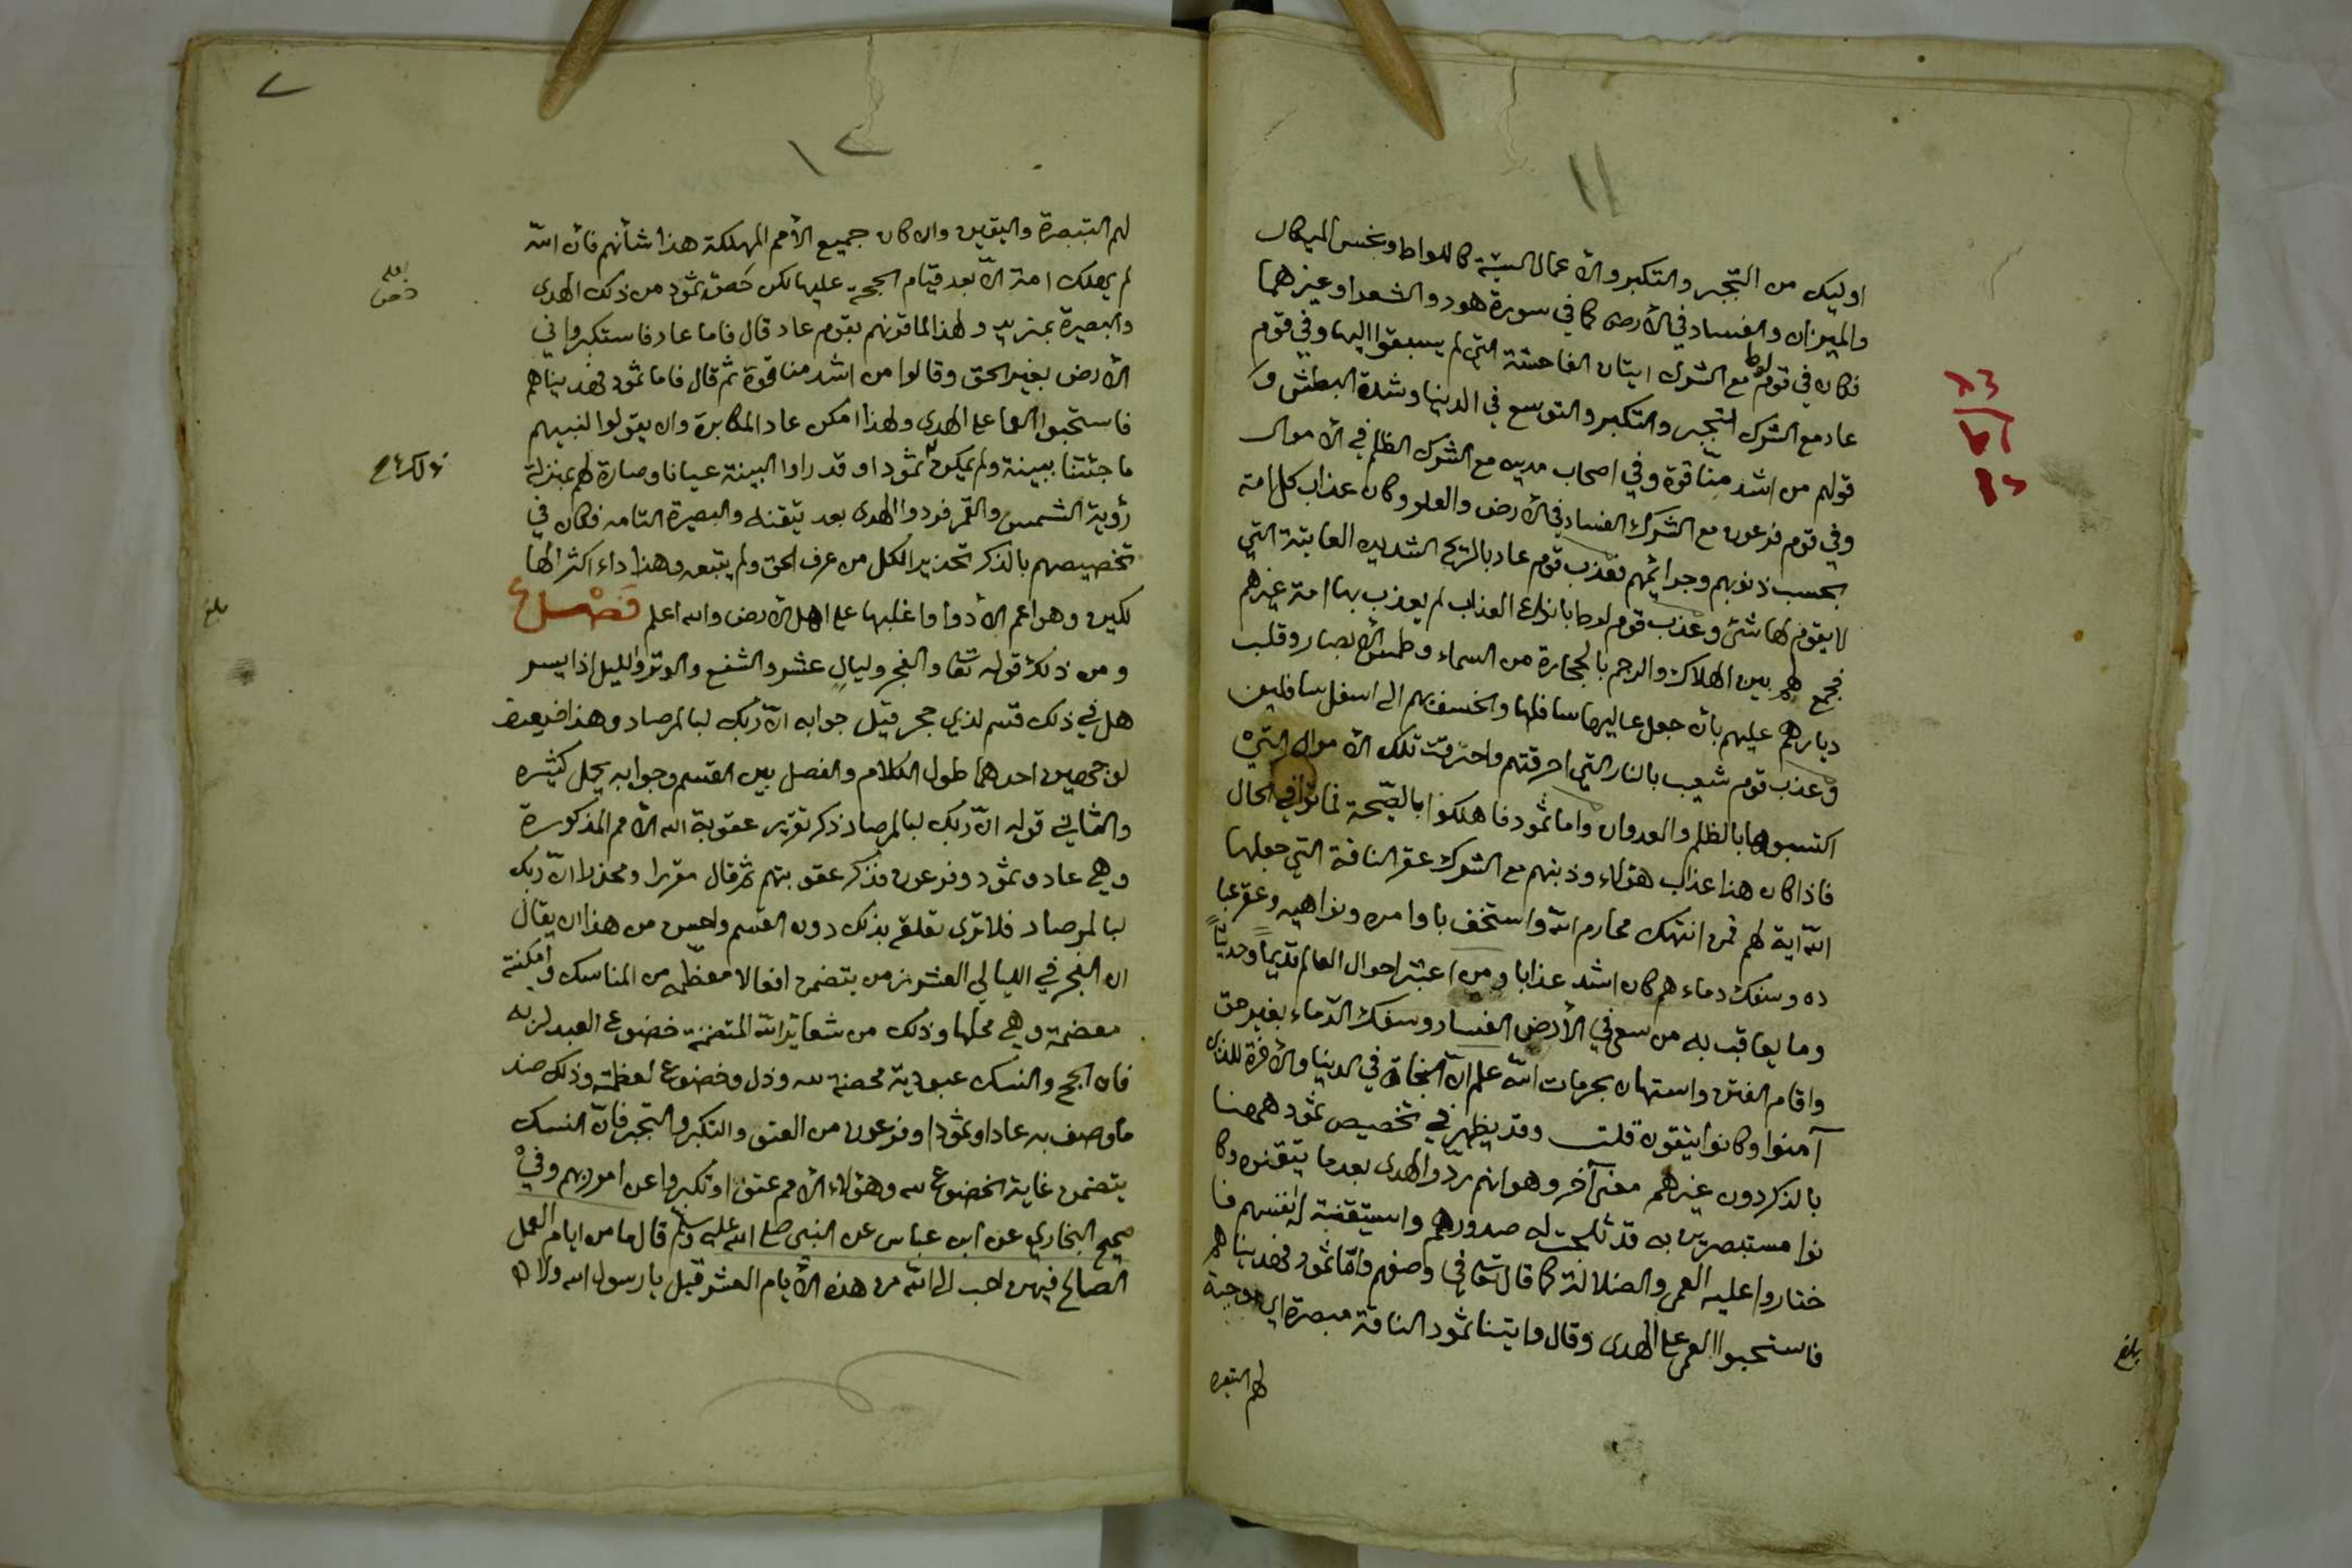 ١١
اوليك من التجبر والتكبر والأعمال السيئة كاللواط وبخس المكال
والميزان والفساد في الأرض كما في سورة هود والشعراو غيرهما
فكان في قوم لوط مع الشرك ايتان الفاحشة التي لم يسبقوا اليها وفي قوم
عاد مع الشرك التجبر والتكبر والتوسع في الدنيا وشدة البطش و
قولهم من اشد منّا قوة وفي اصحاب مدين مع الشرك الظلم في الأموال
وفي قوم فرعون مع الشرك الفساد في الأرض والعلو وكان عذاب كل امة
بحسب ذنوبهم وجرائمهم فعذب قوم عاد بالريح الشديدة العاتية التي
لا يقوم لها شئ وعذب قوم لوط بانواع العذاب لم يعذب بها امة غيرهم
فجمع لهم بين الهلاك والرجم بالحجارة من السماء وطمس الأبصار وقلب
ديارهم عليهم بأن جعل عاليها سافلها والخسف بهم الى اسفل سافلين
وعذب قوم شعيب بالنار التي احرقتهم واحترقت تلك الأموال التي
اكتسبوها بالظلم والعدوان واما ثمود فاهلكوا بالصّيحة فماتوا في الحال
فاذا كان هذا عذاب هؤلاء وذنبهم مع الشرك عقر الناقة التي جعلها
اللّه اية لهم فمن انتهك محارم اللّه واستخف باوامره ونواهيه وعقر عبا
ده وسفك دماءهم كان اشد عذابا ومن اعتبر احوال العالم قديماً وحديثاً
وما يعاقب به من سعى في الأرض الفساد وسفك الدّماء بغير حق
واقام الفتن واستهان بحرمات اللّه علم انّ النجاة في الدنيا والآخرة للذين
آمنوا وكانوا يتقون قلت وقد يظهر في تخصيص ثمود ههنا
بالذكر دون غيرهم معنى آخر وهو انهم ردّوا الهدى بعد ما تيقنوه وكا
نوا مستبصرين به قد ثلجت له صدورهم واستيقنته انفسهم فا
ختاروا عليه العمى والضلالة كما قال تعالى في وصفهم وامّا ثمود فهديناهم
فاستحبوا العمى على الهدى وقال واتينا ثمود الناقة مبصرة اي موجبة
لهم التبصرة
بلغ
٧
١٢
لهم التبصرة واليقين وان كان جميع الأمم المهلكة هذا شأنهم فأن اللّه
لم يهلك امة الّا بعد قيام الحجة عليها لكن خصّ ثمود من ذلك الهدى
والبصيرة بمزيد ولهذا لما قرنهم بقوم عاد قال فاما عاد فاستكبروا في
الأرض بغير الحق وقالوا من اشد منا قوة ثم قال فاما ثمود فهديناهم
فاستحبوا العما على الهدى ولهذا امكن عاد المكابرة وان يقولوا لنبيهم
ما جئتنا ببينة ولم يمكن ثمودا وقد راوا البينة عيانا وصارة لهم بمنزلة
رؤية الشمس والقمر فردوا الهدى بعد تيقنه والبصيرة التامه فكان في
تخصيصهم بالذكر تحذير الكل من عرف الحق ولم يتبعه وهذا داء اكثر الها
لكين وهو اعم الأدوا واغلبها على اهل الأرض والله اعلم فصل
ومن ذلك قوله تعا والفجر وليال عشر والشفع والوتر والليل اذا يسر
هل في ذلك قسم لذي حجر قيل جوابه انّ ربّك لبالمرصاد وهذا ضعيف
لوجهين احدهما طول الكلام والفصل بين القسم وجوابه بجمل كثيره
والثاني قوله انّ ربّك لبالمرصاد ذكر تقرير عقوبة الله الأمم المذكورة
وهي عاد وثمود وفرعون فذكر عقوبتهم ثم قال مقررا ومحذرا انّ ربّك
لبالمرصاد فلا ترى تعلقه بذلك دون القسم واحسن من هذا ان يقال
ان الفجر في الليالي العشر زمن يتضمن افعالا معظّمه من المناسك وامكنة
معضمة وهي محلها وذلك من شعاير اللّه المتضمنة خضوع العبد لربه
فان الحج والنسك عبودية محضة لله وذل وخضوع لعظمته وذلك ضد
ما وصف به عادا وثمودا وفرعون من العتو والتكبر والتجبر فانّ النسك
يتضمن غاية الخضوع لله وهؤلاء الأمم عتوا وتكبروا عن امر ربهم وفي
صحيح البخاري عن ابن عباس عن النبى صلى الله عليه وسلم قال ما من ايام العمل
الصالح فيهن احب الى اللّه من هذه الأيام العشر قيل يا رسول الله ولا الجها
بلغ